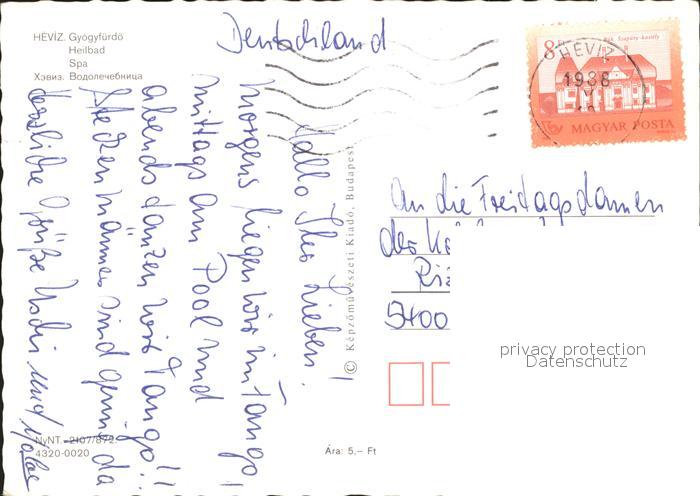 HÉVÍZ. Gyógyfürdő
Heilbad
Spa
Хэвиз. Водолечебница
Deutschland
Hallo Ihr Lieben!
Morgens liegen wir im Tango!
mittags am Pool und
abends tanzen wir Tango!!
Herzliche Grüße
und
NyNT. 2107/872.
4320-0020
© Képzőművészeti Kiadó, Budapest
Ára: 5,– Ft
8 Ft
HÉVÍZ
1988
MAGYAR POSTA
An die Freitagsdamen
der
5400
privacy protection
Datenschutz